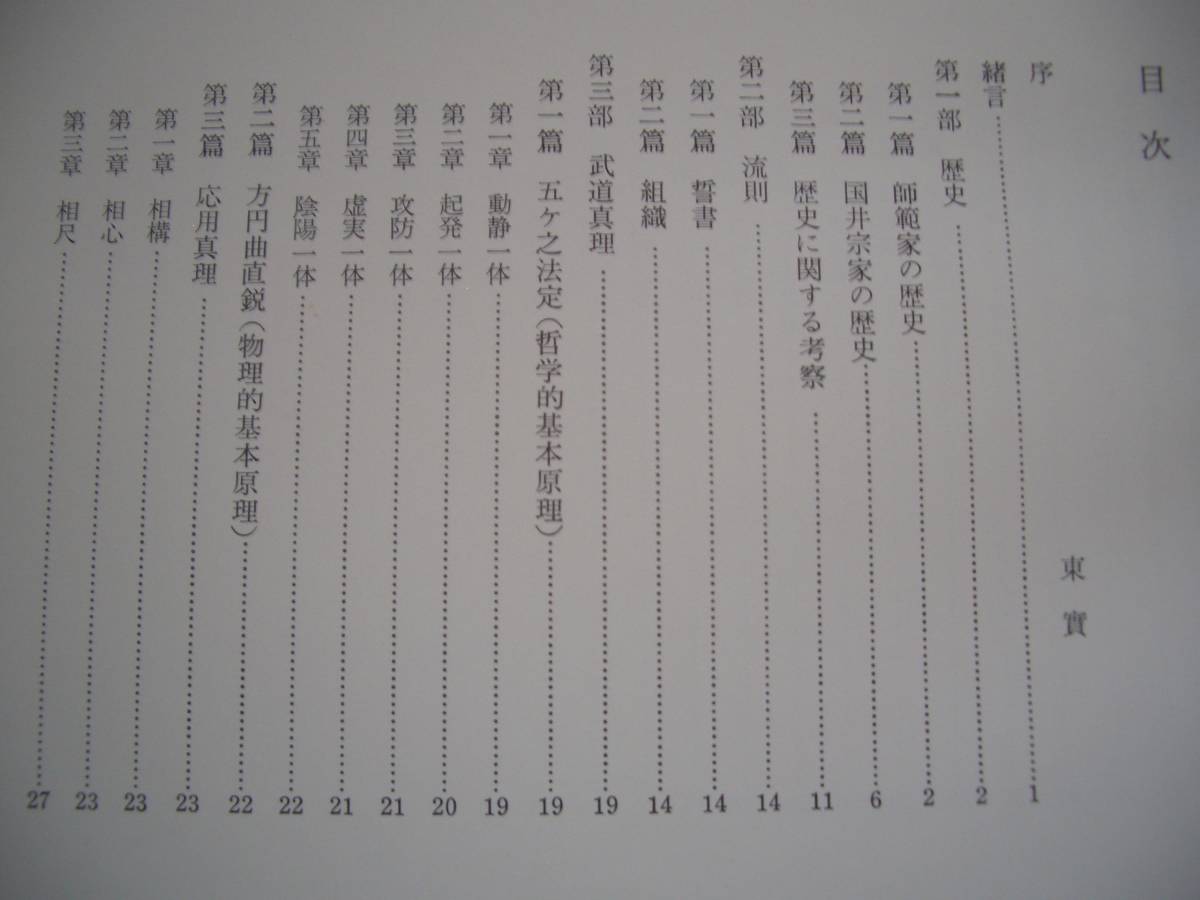 目次
序 東實
緒言 1
第一部 歴史 2
第一篇 師範家の歴史 2
第二篇 国井宗家の歴史 6
第三篇 歴史に関する考察 11
第二部 流則 14
第一篇 誓書 14
第二篇 組織 14
第三部 武道真理 19
第一篇 五ヶ之法定(哲学的基本原理) 19
第一章 動静一体 19
第二章 起発一体 20
第三章 攻防一体 21
第四章 虚実一体 21
第五章 陰陽一体 22
第二篇 方円曲直鋭(物理的基本原理) 22
第三篇 応用真理 23
第一章 相構 23
第二章 相心 23
第三章 相尺 27